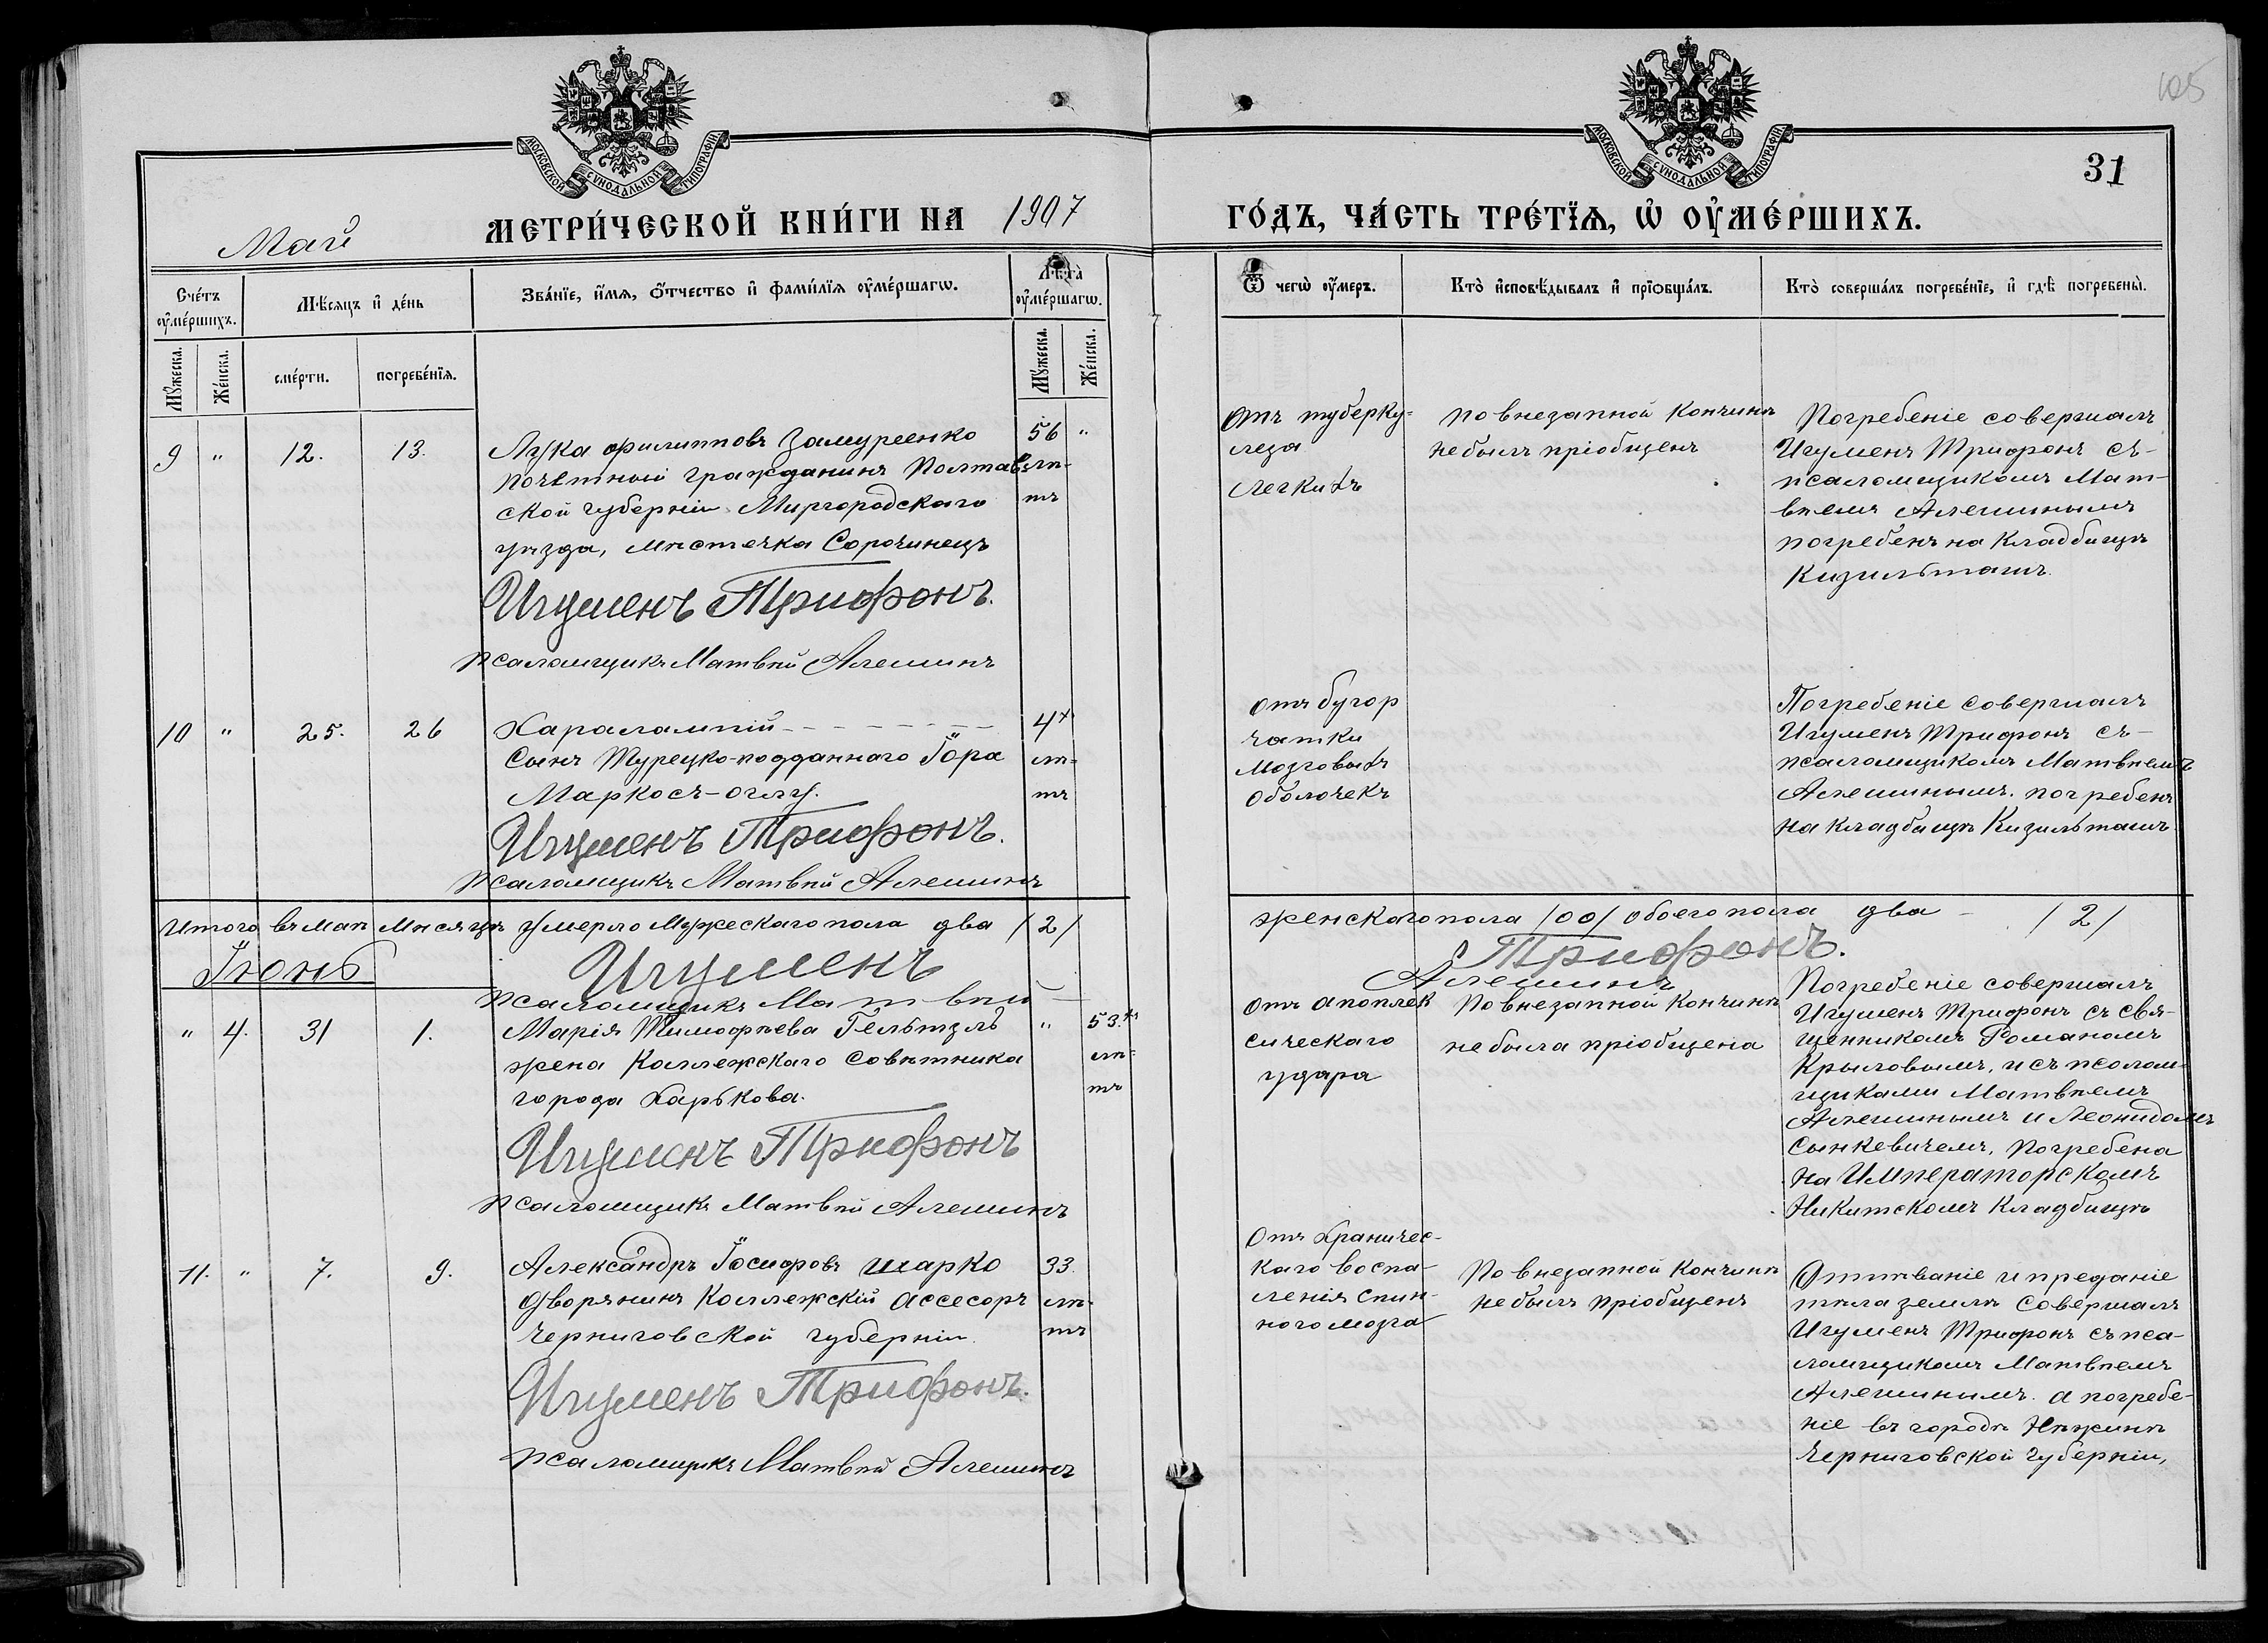 МОСКОВСКОЙ СѴНОДАЛЬНОЙ ТИПОГРАФІИ
МОСКОВСКОЙ СѴНОДАЛЬНОЙ ТИПОГРАФІИ
105
31
Май
МЕТРИ́ЧЕСКОЙ КНИ́ГИ НА 1907
ГО́ДЪ, ЧА́СТЬ ТРЕ́ТЇѦ, Ѡ҆ ОУ҆МЕ́РШИХЪ.
Сче́тъ оу҆ме́ршихъ.
Мѣ́сѧцъ и҆ де́нь
Зва́нїе, и҆́мѧ, ѻ҆́тчество и҆ фами́лїѧ оу҆ме́ршагѡ.
Лѣ́та оу҆ме́ршагѡ.
Ѿ чегѡ̀ оу҆́меръ.
Кто̀ и҆сповѣ́дывалъ и҆ прїѡбща́лъ.
Кто̀ соверша́лъ погребе́нїе, и҆ гдѣ̀ погребены̀.
Мꙋ́жеска.
Же́нска.
сме́рти.
погребе́нїѧ.
Мꙋ́жеска.
Же́нска.
9 " 12. 13.
Лука Филипповъ Замуреенко
почетный гражданинъ Полтав-
ской губерніи Миргородскаго
уѣзда, мѣстечка Сорочинецъ
Игуменъ Трифонъ.
Псаломщикъ Матвѣй Алешинъ
56 "
лѣ-
тъ
Отъ туберку-
леза
Легкихъ
По внезапной кончинѣ
небылъ пріобщенъ
Погребеніе совершалъ
Игуменъ Трифонъ съ-
псаломщикомъ Мат-
вѣемъ Алешинымъ
погребенъ на кладбищѣ
Кизильташъ
10 " 25. 26
Харалампій
Сынъ Турецко-подданнаго Іора
Маркосъ-оглу.
Игуменъ Трифонъ.
Псаломщикъ Матвѣй Алешинъ
4х
лѣ-
тъ
Отъ бугор
чатки
мозговыхъ
оболочекъ
Погребеніе совершалъ
Игуменъ Трифонъ съ-
псаломщикомъ Матвѣемъ
Алешинымъ. погребенъ
на кладбищѣ Кизильташъ
Итого въ маѣ мѣсяцѣ умерло Мужескаго пола два /2/
женскаго пола /00/ обоего пола два - /2/
Игуменъ Трифонъ.
Псаломщикъ Матвѣй Алешинъ
Іюнь
" 4. 31 1.
Марія Тимофѣева Гельтцлъ
жена Коллежскаго Совѣтника
города Харькова.
Игуменъ Трифонъ
Псаломщикъ Матвѣй Алешинъ
" 53.х
лѣ-
тъ
Отъ апоплек
сическаго
удара
По внезапной кончинѣ
не была пріобщена
Погребеніе совершалъ
Игуменъ Трифонъ съ свя-
щенникомъ Романомъ
Крыловымъ, и съ псолом-
щиками Матвѣемъ
Алешинымъ и Леонидомъ
Сынкевичемъ, Погребена
на Императорскомъ
Никитскомъ кладбищѣ
11. " 7. 9.
Александръ Іосифовъ Шарко
дворянинъ Коллежскій ассесоръ
Черниговской губерніи
Игуменъ Трифонъ.
Псаломщикъ Матвѣй Алешинъ
33.
лѣ-
тъ
Отъ храничес-
каго воспа-
ленія спин-
ного мозга
По внезапной кончинѣ
небылъ пріобщенъ
Отпѣваніе и преданіе
тѣла землѣ совершалъ
Игуменъ Трифонъ съ пса-
ломщикомъ Матвѣемъ
Алешинымъ. а погребе-
ніе въ городѣ Нѣжинѣ
Черниговской губерніи,